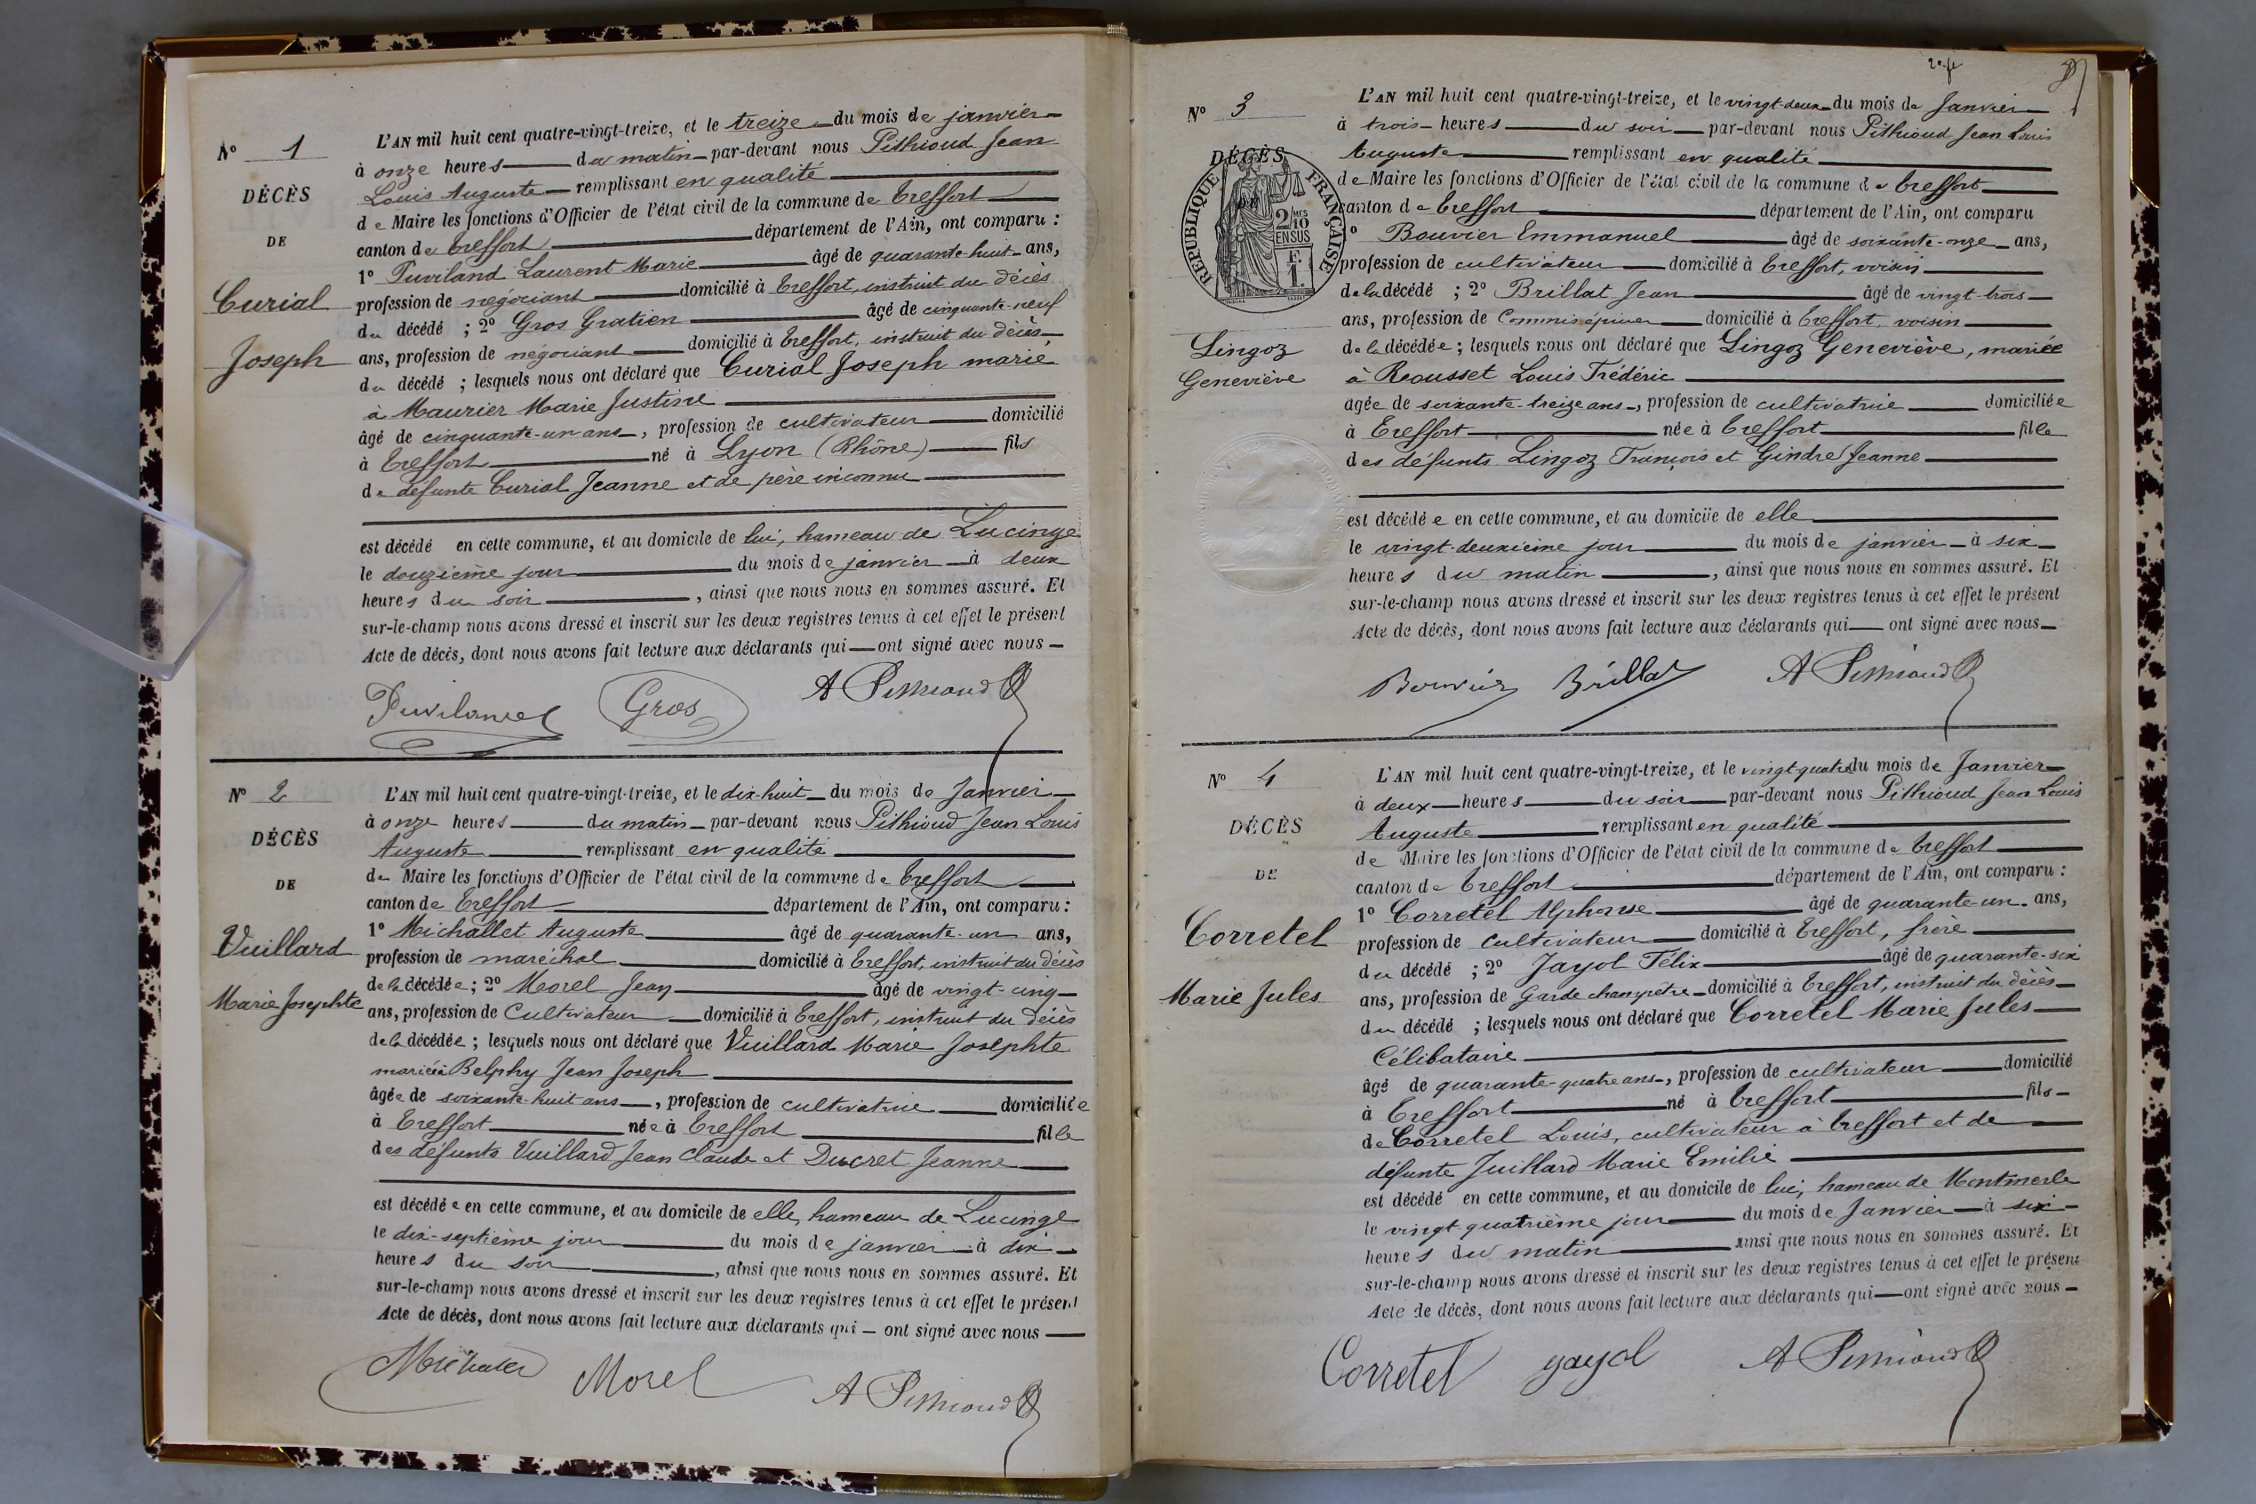 N° 1
DÉCÈS
DE
Curial
Joseph
L'AN mil huit cent quatre-vingt-treize, et le treize du mois de janvier
à onze heures du matin par-devant nous Pithioud Jean
Louis Auguste remplissant en qualité
de Maire les fonctions d'Officier de l'état civil de la commune de Treffort
canton de Treffort département de l'Ain, ont comparu :
1° Puviland Laurent Marie âgé de quarante-huit ans,
profession de négociant domicilié à Treffort, instruit du décès
du décédé ; 2° Gros Gratien âgé de cinquante-neuf
ans, profession de négociant domicilié à Treffort, instruit du décès,
du décédé ; lesquels nous ont déclaré que Curial Joseph marié
à Maurier Marie Justine
âgé de cinquante-un ans, profession de cultivateur domicilié
à Treffort né à Lyon (Rhône) fils
de défunte Curial Jeanne et de père inconnu
est décédé en cette commune, et au domicile de lui, hameau de Lucinge
le douzième jour du mois de janvier à deux
heures du soir, ainsi que nous nous en sommes assuré. Et
sur-le-champ nous avons dressé et inscrit sur les deux registres tenus à cet effet le présent
Acte de décès, dont nous avons fait lecture aux déclarants qui ont signé avec nous
Puviland Gros A Pithioud
N° 2
DÉCÈS
DE
Vuillard
Marie Josephte
L'AN mil huit cent quatre-vingt-treize, et le dix-huit du mois de Janvier
à onze heures du matin par-devant nous Pithioud Jean Louis
Auguste remplissant en qualité
de Maire les fonctions d'Officier de l'état civil de la commune de Treffort
canton de Treffort département de l'Ain, ont comparu :
1° Michallet Auguste âgé de quarante-un ans,
profession de maréchal domicilié à Treffort, instruit du décès
de la décédée ; 2° Morel Jean âgé de vingt-cinq
ans, profession de Cultivateur domicilié à Treffort, instruit du décès
de la décédée ; lesquels nous ont déclaré que Vuillard Marie Josephte
mariée à Belphy Jean Joseph
âgée de soixante-huit ans, profession de cultivatrice domiciliée
à Treffort née à Treffort fille
des défunts Vuillard Jean Claude et Ducret Jeanne
est décédée en cette commune, et au domicile de elle, hameau de Lucinge
le dix-septième jour du mois de janvier à dix
heures du soir, ainsi que nous nous en sommes assuré. Et
sur-le-champ nous avons dressé et inscrit sur les deux registres tenus à cet effet le présent
Acte de décès, dont nous avons fait lecture aux déclarants qui ont signé avec nous
Michallet Morel A Pithioud
N° 3
DÉCÈS
RÉPUBLIQUE FRANÇAISE
2/10 MES
EN SUS
F.
1
Lingoz
Geneviève
L'AN mil huit cent quatre-vingt-treize, et le vingt-deux du mois de Janvier
à trois heures du soir par-devant nous Pithioud Jean Louis
Auguste remplissant en qualité
de Maire les fonctions d'Officier de l'état civil de la commune de Treffort
canton de Treffort département de l'Ain, ont comparu
° Bouvier Emmanuel âgé de soixante-onze ans,
profession de cultivateur domicilié à Treffort, voisin
de la décédé ; 2° Brillat Jean âgé de vingt-trois
ans, profession de Commis épicier domicilié à Treffort, voisin
de la décédée ; lesquels nous ont déclaré que Lingoz Geneviève, mariée
à Rousset Louis Frédéric
âgée de soixante-treize ans, profession de cultivatrice domiciliée
à Treffort née à Treffort fille
des défunts Lingoz François et Gindre Jeanne
est décédée en cette commune, et au domicile de elle
le vingt-deuxième jour du mois de janvier à six
heures du matin, ainsi que nous nous en sommes assuré. Et
sur-le-champ nous avons dressé et inscrit sur les deux registres tenus à cet effet le présent
Acte de décès, dont nous avons fait lecture aux déclarants qui ont signé avec nous
Bouvier Brillat A Pithioud
N° 4
DÉCÈS
DE
Corretel
Marie Jules
L'AN mil huit cent quatre-vingt-treize, et le vingt-quatre du mois de Janvier
à deux heures du soir par-devant nous Pithioud Jean Louis
Auguste remplissant en qualité
de Maire les fonctions d'Officier de l'état civil de la commune de Treffort
canton de Treffort département de l'Ain, ont comparu :
1° Corretel Alphonse âgé de quarante-un ans,
profession de cultivateur domicilié à Treffort, frère
du décédé ; 2° Jayol Félix âgé de quarante-six
ans, profession de Garde champêtre domicilié à Treffort, instruit du décès
du décédé ; lesquels nous ont déclaré que Corretel Marie Jules
Célibataire
âgé de quarante-quatre ans, profession de cultivateur domicilié
à Treffort né à Treffort fils
de Corretel Louis, cultivateur à Treffort et de
défunte Juillard Marie Emilie
est décédé en cette commune, et au domicile de lui, hameau de Montmerle
le vingt-quatrième jour du mois de Janvier à six
heures du matin ainsi que nous nous en sommes assuré. Et
sur-le-champ nous avons dressé et inscrit sur les deux registres tenus à cet effet le présent
Acte de décès, dont nous avons fait lecture aux déclarants qui ont signé avec nous
Corretel Jayol A Pithioud